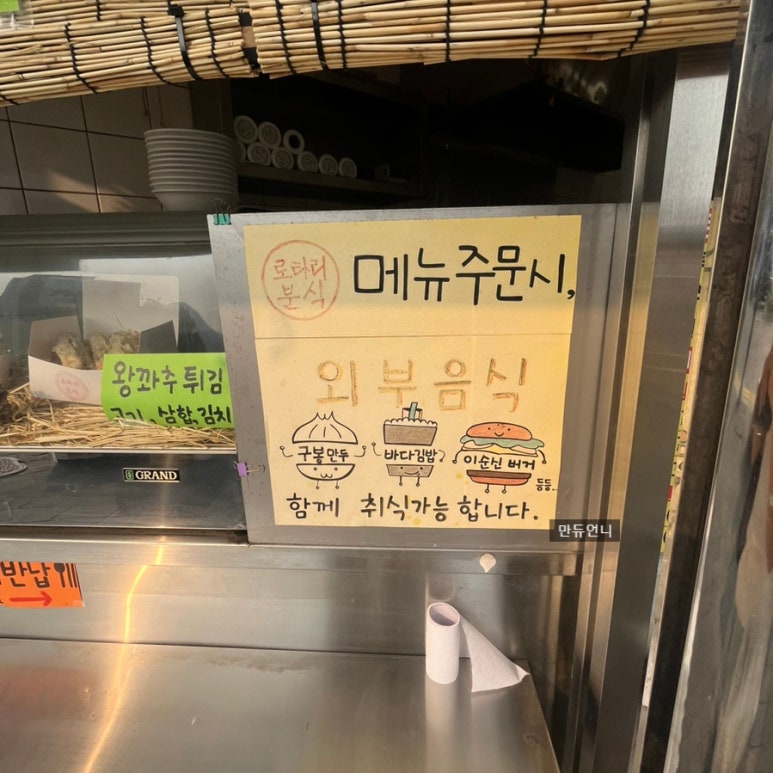 로타리
분식
메뉴 주문시,
외부음식
구봉만두
바다김밥
이순신 버거
등등..
함께 취식가능합니다.
만듀언니
왕꽈추튀김
고기, 삼합, 김치
GRAND
반납